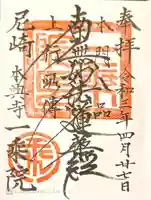 奉拝
令和三年四月廿七日
本門八品
南無妙法蓮華経
上行所傳
尼崎
本興寺
一乗院